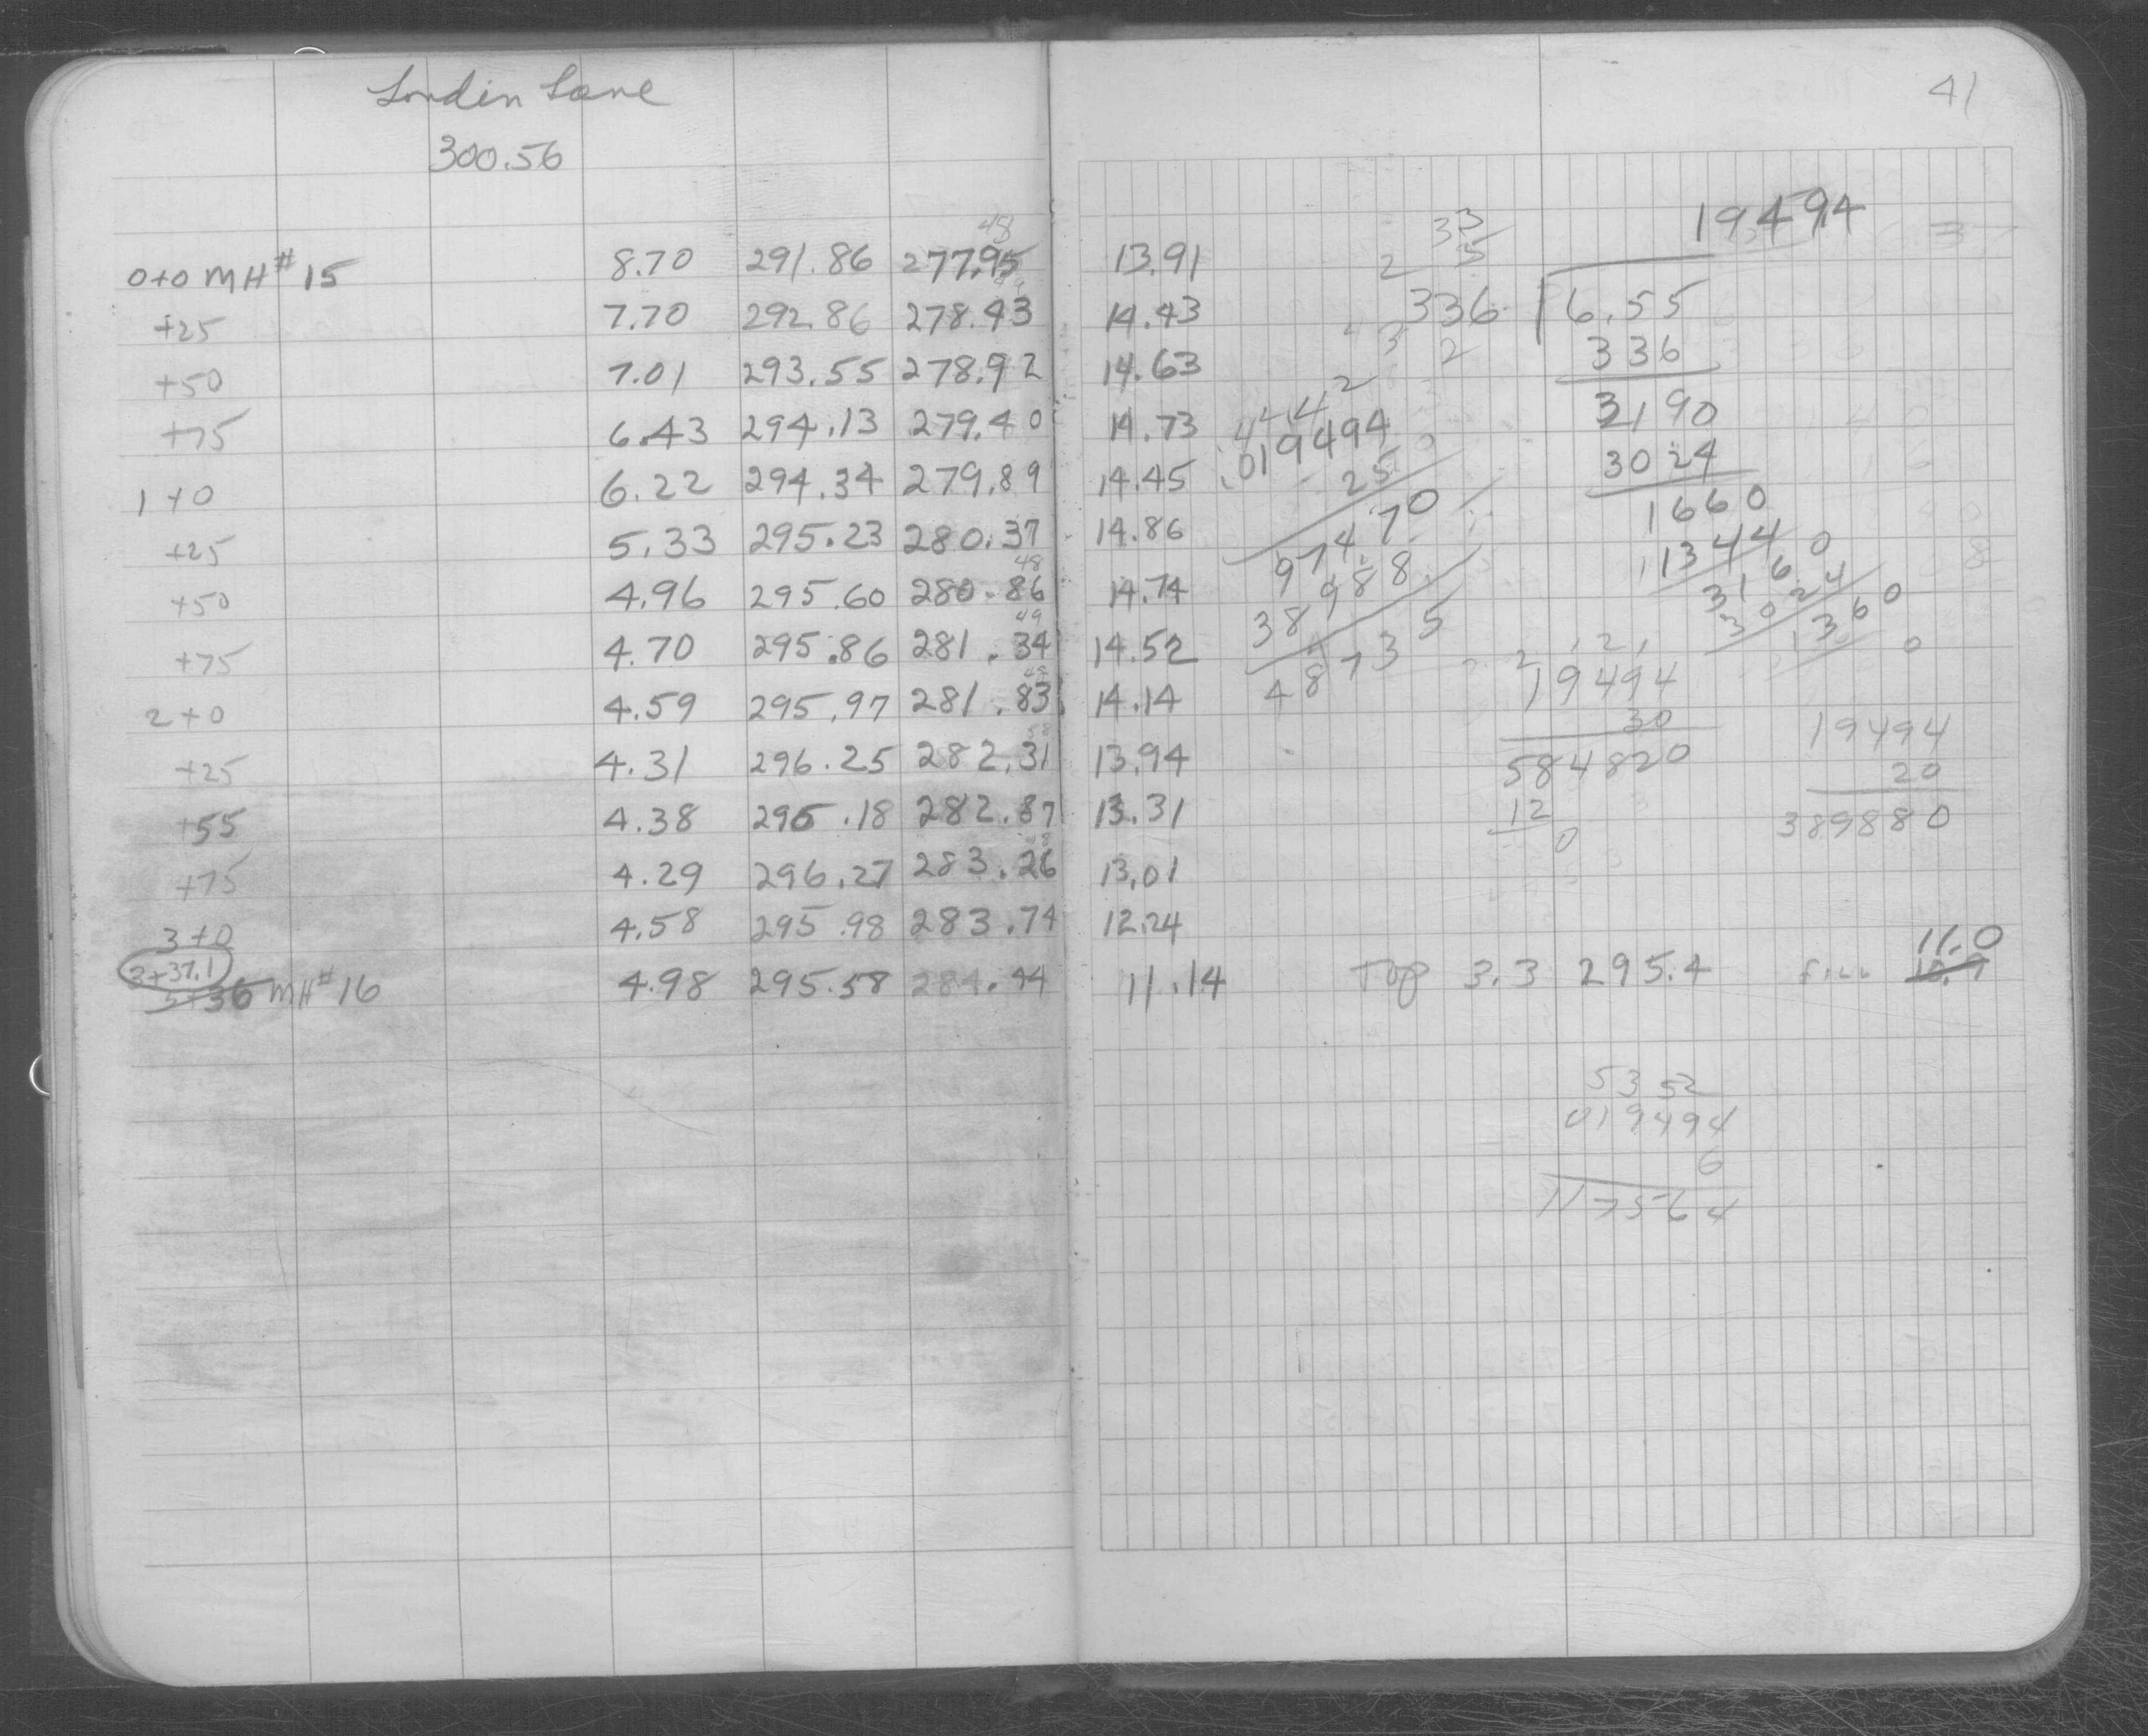 Londin Lane
41
300.56
48
0+0 MH#15 8.70 291.86 277.95 13.91
+25 7.70 292.86 278.43 14.43
+50 7.01 293.55 278.92 14.63
+75 6.43 294.13 279.40 14.73
1+0 6.22 294.34 279.89 14.45
+25 5.33 295.23 280.37 14.86
48
+50 4.96 295.60 280.86 14.74
49
+75 4.70 295.86 281.34 14.52
2+0 4.59 295.97 281.83 14.14
+25 4.31 296.25 282.31 13.94
+55 4.38 296.18 282.87 13.31
+75 4.29 296.27 283.26 13.01
3+0 4.58 295.98 283.74 12.24
3+37.1
3+36 MH#16 4.98 295.58 284.44 11.14 Top 3.3 295.4 fill 10.9
11.0
19494
33
2 5
336 6.55
3 2
336
3190
3024
1660
1344
3160
3024
1360
0
4442
.019494
25
97470
38988
48735
2 121
19494
30
584820
12
0
19494
20
389880
5352
019494
6
117564